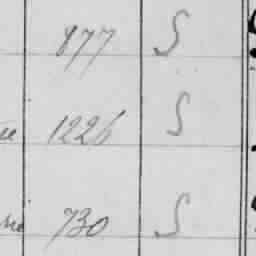 877 S
1226 S
730 S